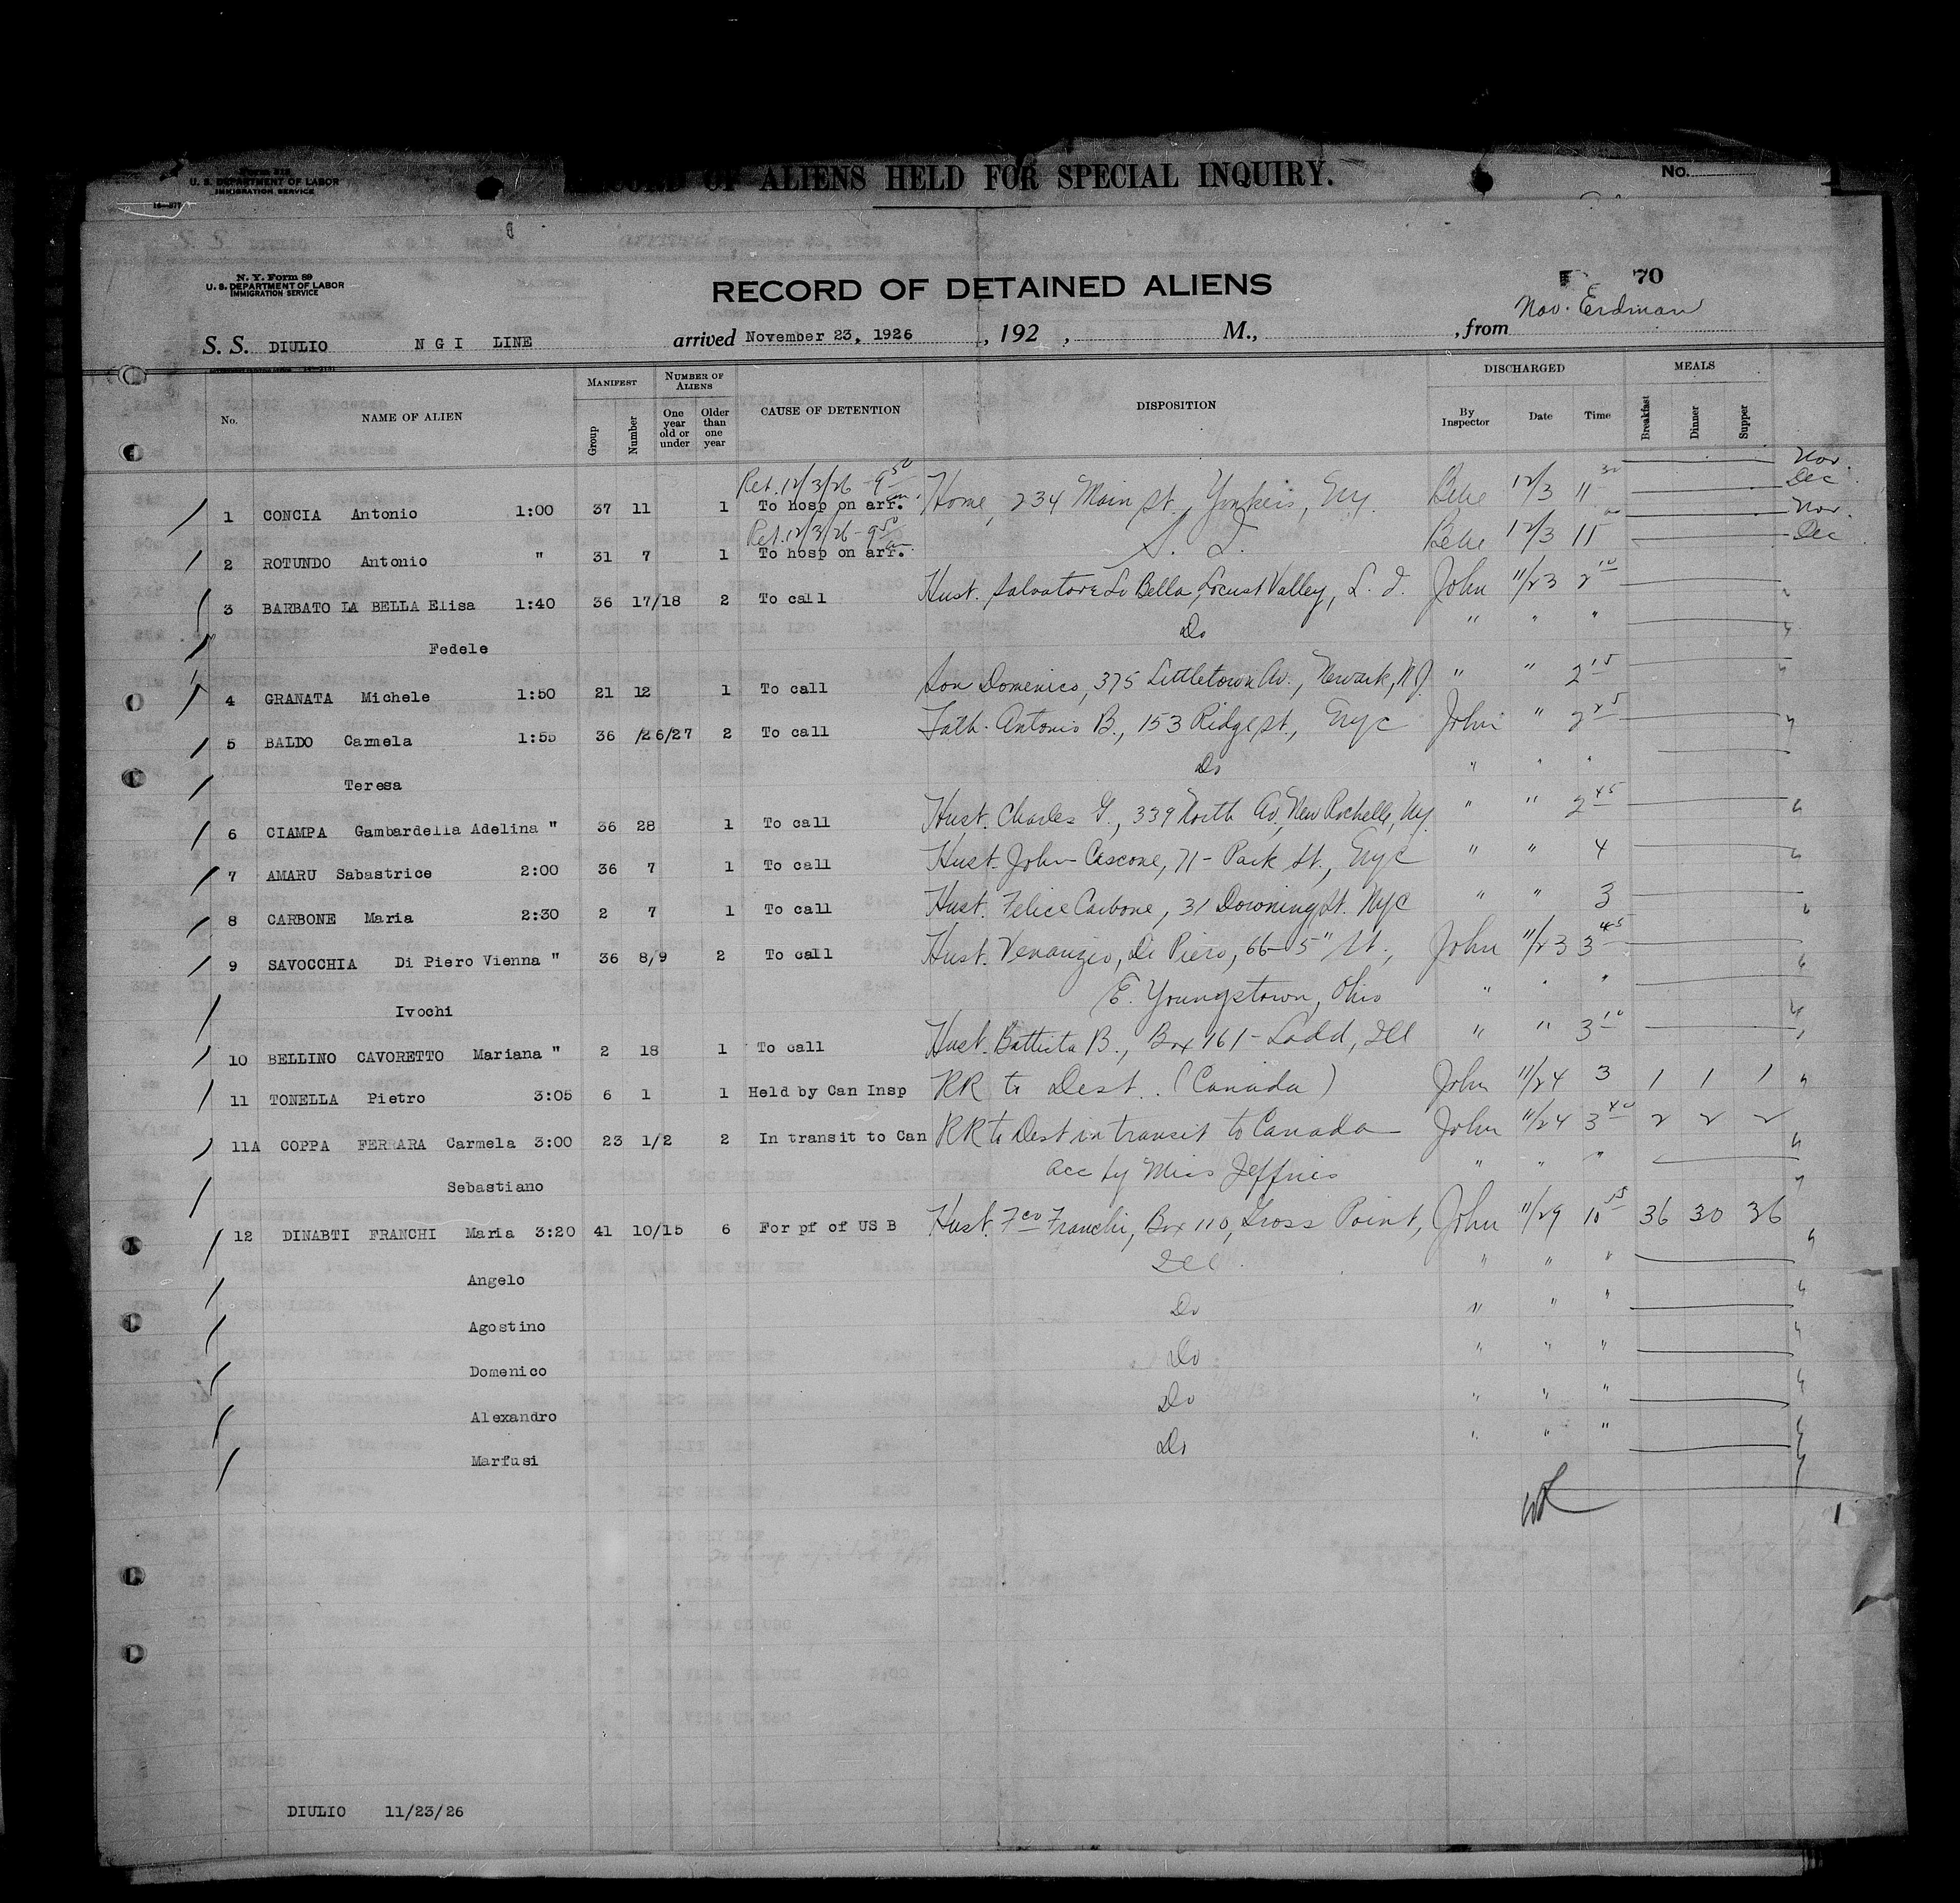 Form 218
U. S. DEPARTMENT OF LABOR
IMMIGRATION SERVICE
OF ALIENS HELD FOR SPECIAL INQUIRY.
No.
N. Y. Form 89
U. S. DEPARTMENT OF LABOR
IMMIGRATION SERVICE
RECORD OF DETAINED ALIENS
70
Nov. Erdman
S. S. DIULIO N G I LINE arrived November 23, 1926, 192 , M., , from
No. NAME OF ALIEN MANIFEST Group Number NUMBER OF ALIENS One year old or under Older than one year CAUSE OF DETENTION DISPOSITION DISCHARGED By Inspector Date Time MEALS Breakfast Dinner Supper
Ret. 12/3/26 - 9 50 am. Nov.
1 CONCIA Antonio 1:00 37 11 1 To hosp on arr. Home, 234 Main St., Yonkers, N.Y. Bebe 12/3 11 30 Dec
Ret. 12/3/26 - 9 50 am Nov.
2 ROTUNDO Antonio " 31 7 1 To hosp on arr. S. I. Bebe 12/3 11 Dec
3 BARBATO LA BELLA Elisa 1:40 36 17/18 2 To call Husb. Salvatore La Bella, Locust Valley, L. I. John 11/23 2 10
Fedele Do " " "
4 GRANATA Michele 1:50 21 12 1 To call Son Domenico, 375 Littletown Av., Newark, N.J. " " 2 15
5 BALDO Carmela 1:55 36 /26/27 2 To call Fath. Antonio B., 153 Ridge St., N.Y.C John " 2 25
Teresa Do " " "
6 CIAMPA Gambardella Adelina " 36 28 1 To call Husb. Charles G., 339 North Av, New Rochelle, N.Y. " " 2 45
7 AMARU Sabastrice 2:00 36 7 1 To call Husb. John Cascone, 71 - Park St., N.Y.C " " 4
8 CARBONE Maria 2:30 2 7 1 To call Husb. Felice Carbone, 31 Downing St. N.Y.C " " 3
9 SAVOCCHIA Di Piero Vienna " 36 8/9 2 To call Husb. Venanzio, Di Piero, 66 - 5" St., John 11/23 3 45
Ivochi E. Youngstown, Ohio " " "
10 BELLINO CAVORETTO Mariana " 2 18 1 To call Husb. Battista B., Box 161 - Ladd, Ill " " 3 10
11 TONELLA Pietro 3:05 6 1 1 Held by Can Insp RR to Dest. (Canada) John 11/24 3 1 1 1
11A COPPA FERRARA Carmela 3:00 23 1/2 2 In transit to Can RR to Dest in transit to Canada John 11/24 3 40 2 2 2
Sebastiano acc by Miss Jeffries " " "
12 DINABTI FRANCHI Maria 3:20 41 10/15 6 For pf of US B Husb. Fco Franchi, Box 110, Gross Point, John 11/29 10 55 36 30 36
Angelo Ill. " " "
Agostino Do " " "
Domenico Do " " "
Alexandro Do " " "
Marfusi Do " " "
DIULIO 11/23/26